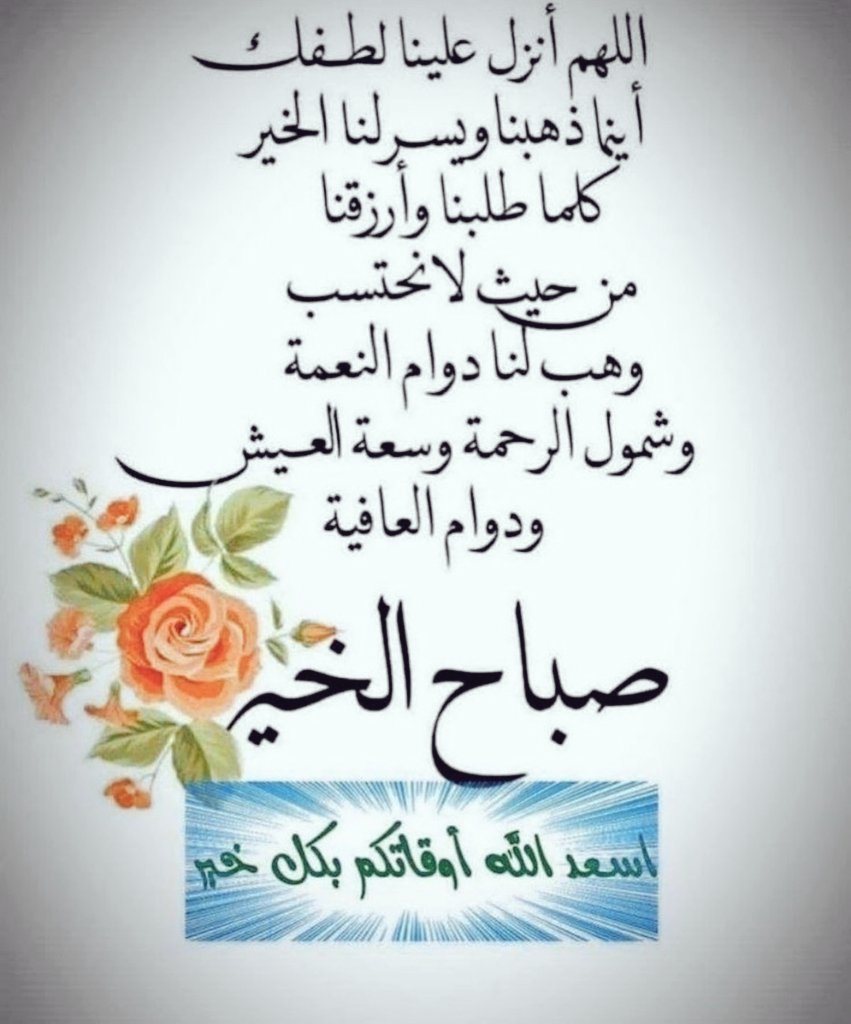 اللهم أنزل علينا لطفك
أينما ذهبنا ويسر لنا الخير
كلما طلبنا وأرزقنا
من حيث لا نحتسب
وهب لنا دوام النعمة
وشمول الرحمة وسعة العيش
ودوام العافية
صباح الخير
اسعد الله أوقاتكم بكل خير